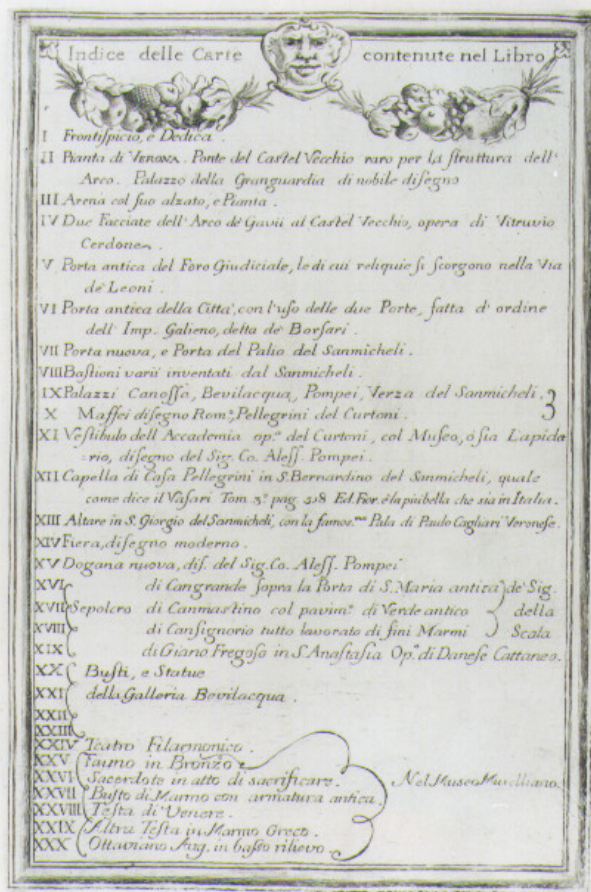 Indice delle Carte contenute nel Libro
I Frontispicio, e Dedica.
II Pianta di VERONA. Ponte del Castel Vecchio raro per la struttura dell'
Arco. Palazzo della Granguardia di nobile disegno
III Arena col suo alzato, e Pianta.
IV Due Facciate dell'Arco de Gavii al Castel Vecchio, opera di Vitruvio
Cerdone.
V Porta antica del Foro Giudiciale, le di cui reliquie si scorgono nella Via
de' Leoni.
VI Porta antica della Città, con l'uso delle due Porte, fatta d'ordine
dell'Imp. Galieno, detta de Borsari.
VII Porta nuova, e Porta del Palio del Sanmicheli.
VIII Bastioni varii inventati dal Sanmicheli.
IX Palazzi Canossa, Bevilacqua, Pompei, Verza del Sanmicheli. 3
X Maffei disegno Rom.º, Pellegrini del Curtoni.
XI Vestibulo dell'Accademia op.ª del Curtoni, col Museo, ò sia Lapida
rio, disegno del Sig. Co. Aless. Pompei.
XII Capella di Casa Pellegrini in S. Bernardino del Sanmicheli, quale
come dice il Vasari Tom 3º pag. 518 Ed. Fior. è la piu bella che sia in Italia.
XIII Altare in S. Giorgio del Sanmicheli, con la famos.ma Pala di Paulo Cagliari Veronese.
XIV Fiera, disegno moderno.
XV Dogana nuova, dis. del Sig. Co. Aless. Pompei
XVI di Cangrande sopra la Porta di S. Maria antica de' Sig.
XVII Sepolcro di Canmastino col pavim.º di Verde antico della
XVIII di Cansignorio tutto lavorato di fini Marmi Scala
XIX di Giano Fregoso in S. Anastasia Op.ª di Danese Cattaneo.
XX Busti, e Statue
XXI della Galleria Bevilacqua.
XXII
XXIII
XXIV Teatro Filarmonico.
XXV Fauno in Bronzo
XXVI Sacerdote in atto di sacrificare. Nel Museo Muselliano.
XXVII Busto di Marmo con armatura antica.
XXVIII Testa di Venere.
XXIX Altra Testa in Marmo Greco.
XXX Ottaviano Aug. in basso rilievo